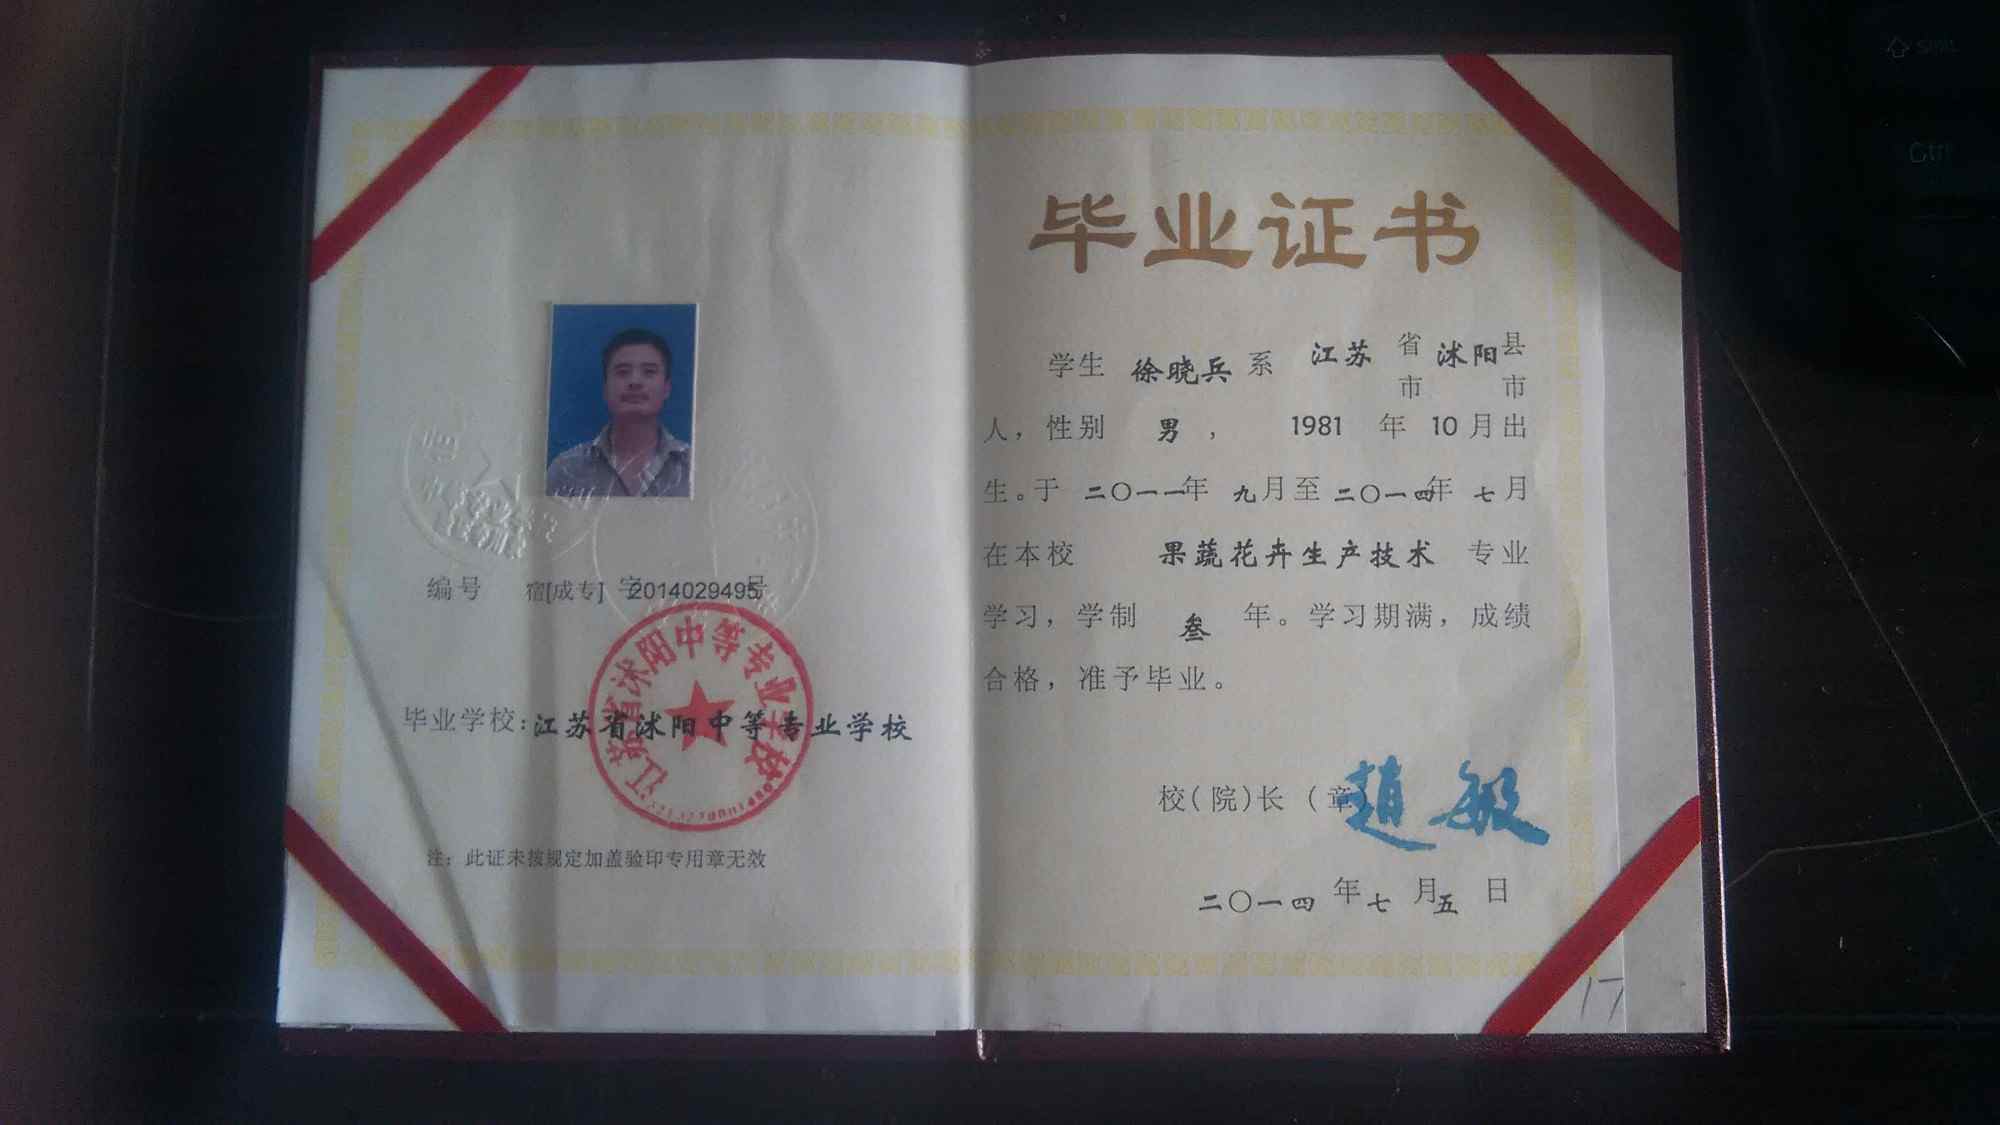 编号 宿[成专] 字2014029495号
江苏省沭阳中等专业学校
毕业学校：江苏省沭阳中等专业学校
注：此证未按规定加盖验印专用章无效
毕业证书
学生 徐晓兵 系 江苏 省市 沭阳 县市
人，性别 男 ， 1981 年 10 月出
生。于 二〇一一年 九月至二〇一四年 七月
在本校 果蔬花卉生产技术 专业
学习，学制 叁 年。学习期满，成绩
合格，准予毕业。
校（院）长（章） 赵敏
二〇一四 年七 月五 日
17
Ctrl